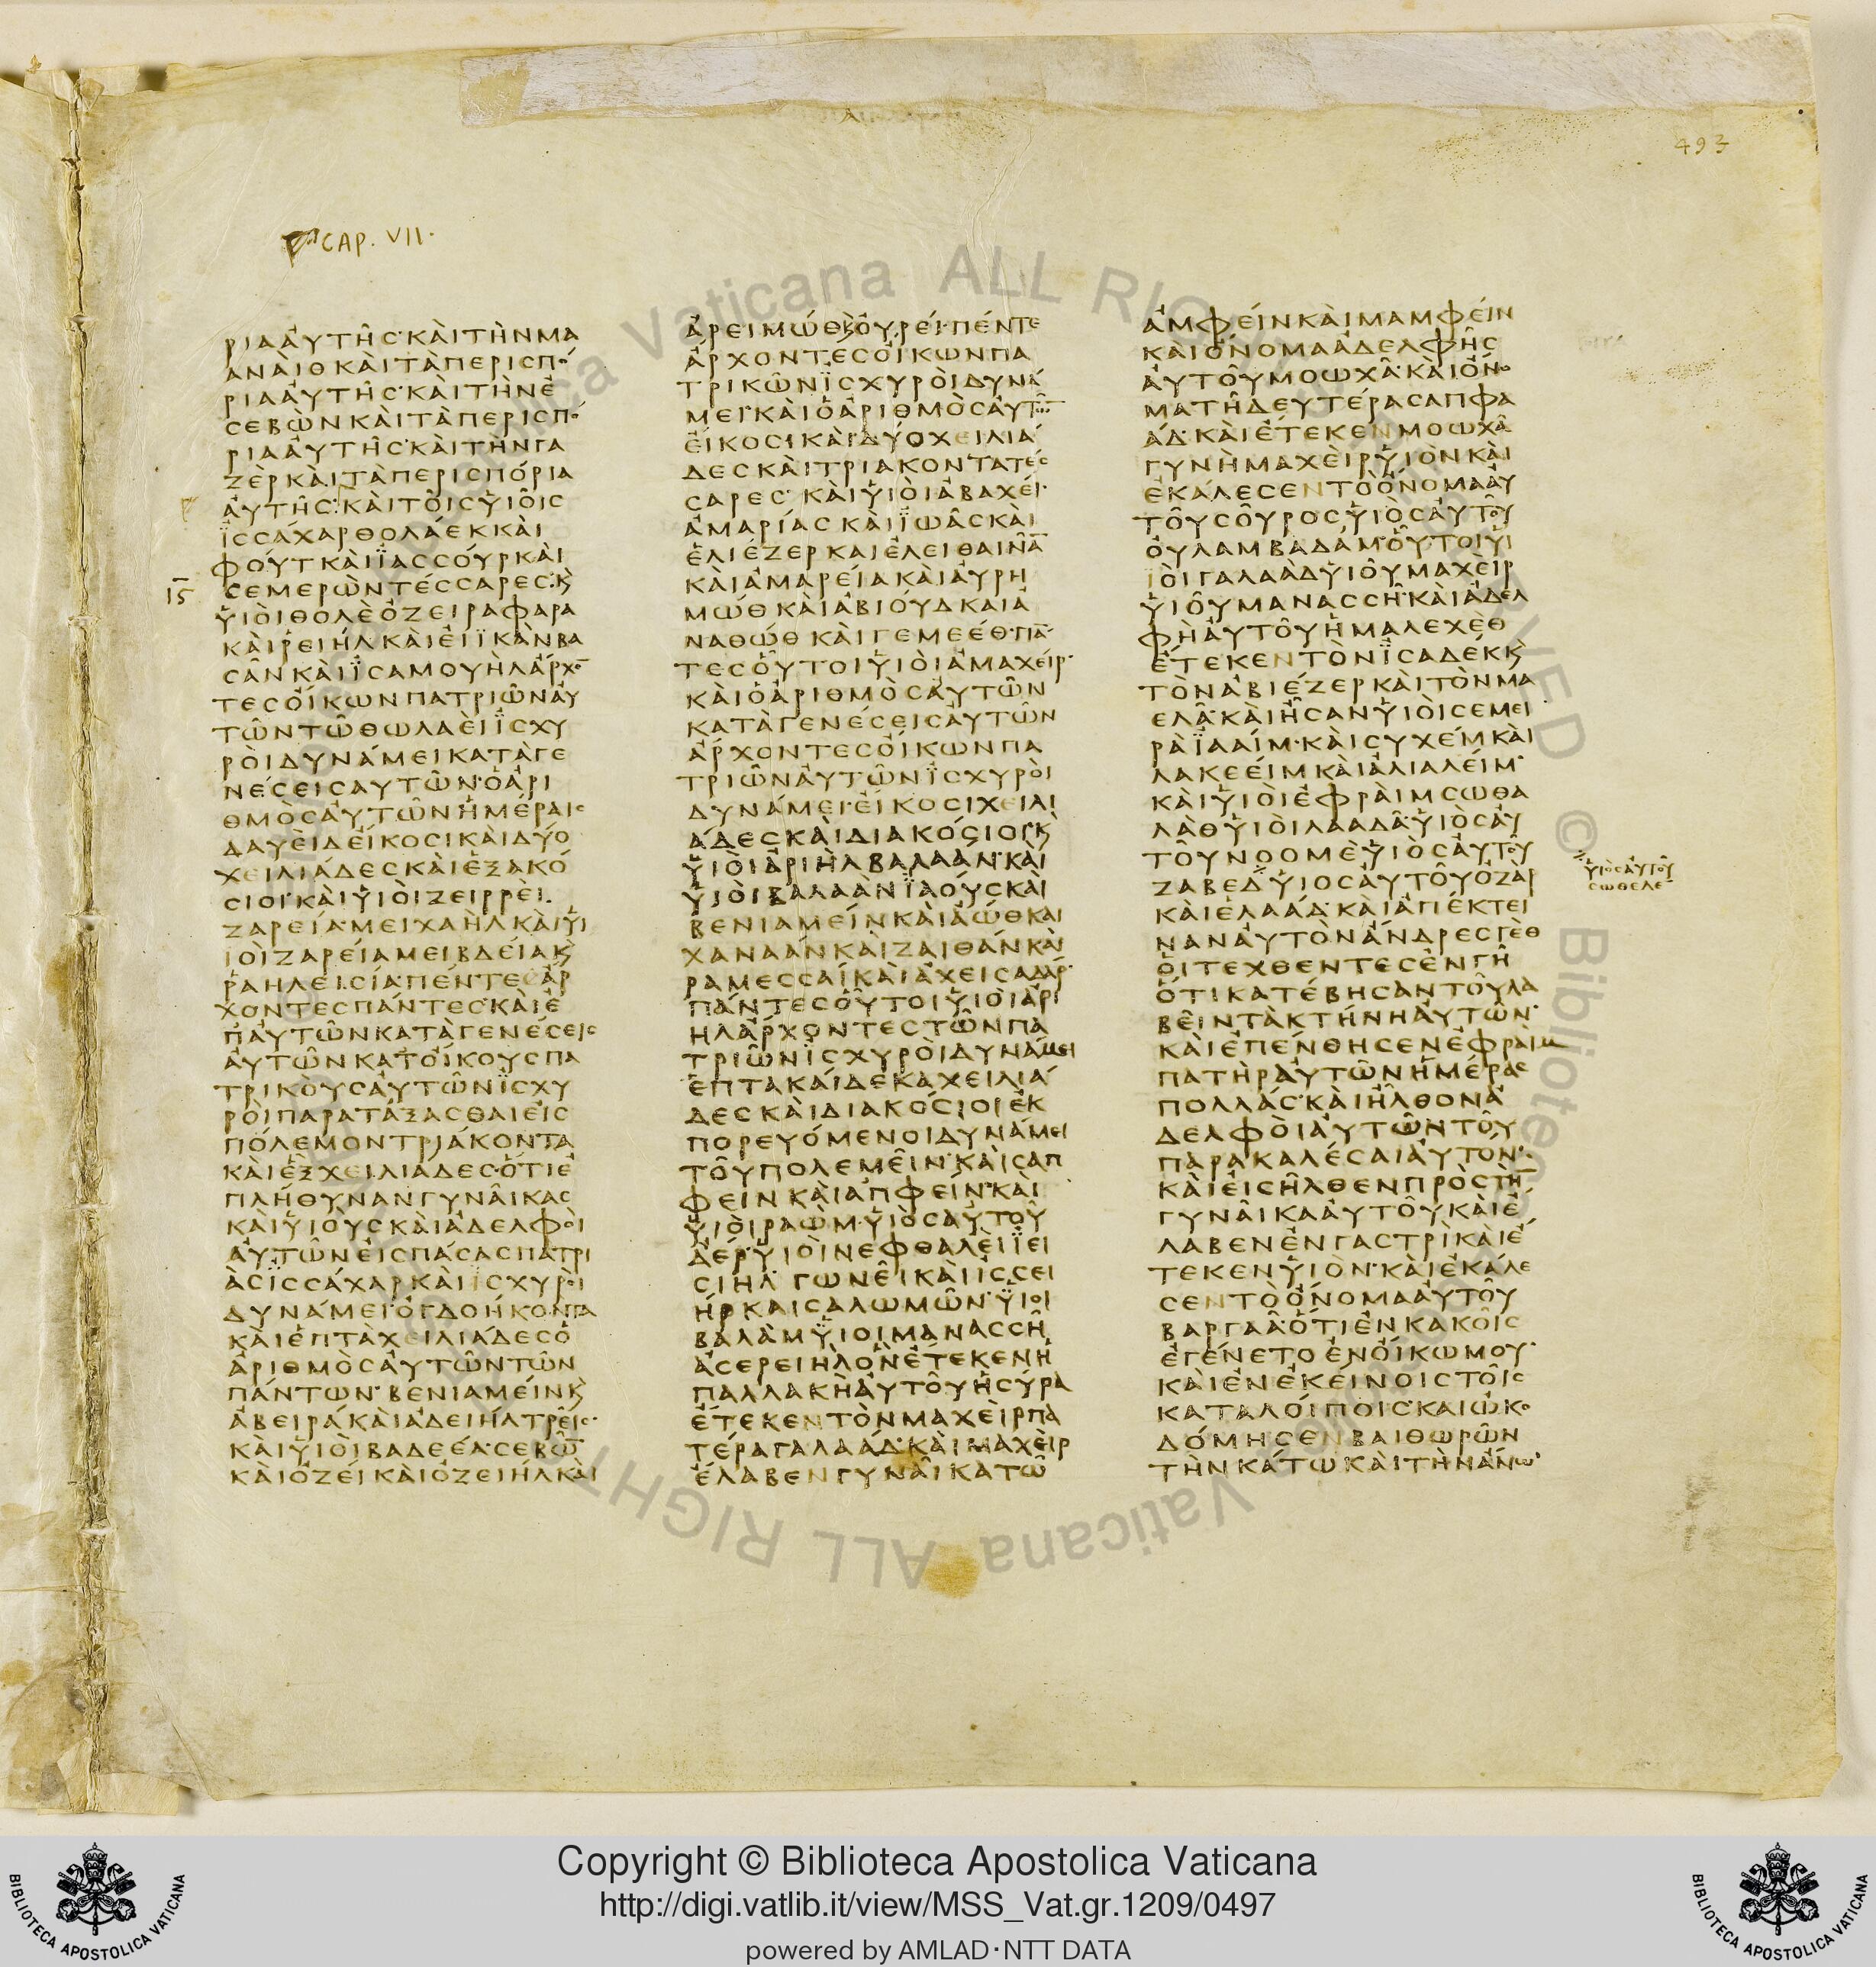 493
CAP. VII.
ΡΙΑΑΥΤΗϹ·ΚΑΙΤΗΝΜΑ
ΑΝΑΙΘΚΑΙΤΑΠΕΡΙϹΠΟ
ΡΙΑΑΥΤΗϹ·ΚΑΙΤΗΝΕ
ϹΕΒΩΝΚΑΙΤΑΠΕΡΙϹΠΟ
ΡΙΑΑΥΤΗϹ·ΚΑΙΤΗΝΓΑ
ΖΕΡΚΑΙΤΑΠΕΡΙϹΠΟΡΙΑ
ΑΥΤΗϹ·ΚΑΙΤΟΙϹΥΙΟΙϹ
ΙϹϹΑΧΑΡΘΟΛΑΕΚΚΑΙ
ΦΟΥΤΚΑΙΙΑϹϹΟΥΡΚΑΙ
ΙϚ
ϹΕΜΕΡΩΝΤΕϹϹΑΡΕϹ·Κ
ΥΙΟΙΘΟΛΕΟΖΕΙΡΑΦΑΡΑ
ΚΑΙΡΕΙΗΛΚΑΙΕΙΙΚΑΝΒΑ
ϹΑΝΚΑΙΙϹΑΜΟΥΗΛΑΡΧΟ
ΤΕϹΟΙΚΩΝΠΑΤΡΙΩΝΑΥ
ΤΩΝΤΩΘΩΛΑΕΙΙϹΧΥ
ΡΟΙΔΥΝΑΜΕΙΚΑΤΑΓΕ
ΝΕϹΕΙϹΑΥΤΩΝ·ΟΑΡΙ
ΘΜΟϹΑΥΤΩΝΗΜΕΡΑΙϹ
ΔΑΥΕΙΔΕΙΚΟϹΙΚΑΙΔΥΟ
ΧΕΙΛΙΑΔΕϹΚΑΙΕΞΑΚΟ
ϹΙΟΙ·ΚΑΙΥΙΟΙΖΕΙΡΡΕΙ
ΖΑΡΕΙΑ·ΜΕΙΧΑΗΛΚΑΙΥΙ
ΙΟΙΖΑΡΕΙΑΜΕΙΒΔΕΙΑΚ
ΡΑΗΛΕΙϹΙΑ·ΠΕΝΤΕΑΡ
ΧΟΝΤΕϹΠΑΝΤΕϹ·ΚΑΙΕ
ΠΑΥΤΩΝΚΑΤΑΓΕΝΕϹΕΙϹ
ΑΥΤΩΝΚΑΤΟΙΚΟΥϹΠΑ
ΤΡΙΚΟΥϹΑΥΤΩΝΙϹΧΥ
ΡΟΙΠΑΡΑΤΑΞΑϹΘΑΙΕΙϹ
ΠΟΛΕΜΟΝΤΡΙΑΚΟΝΤΑ
ΚΑΙΕΞΧΕΙΛΙΑΔΕϹ·ΟΤΙΕ
ΠΛΗΘΥΝΑΝΓΥΝΑΙΚΑϹ
ΚΑΙΥΙΟΥϹΚΑΙΑΔΕΛΦΟΙ
ΑΥΤΩΝΕΙϹΠΑϹΑϹΠΑΤΡΙ
ΑϹΙϹϹΑΧΑΡΚΑΙΙϹΧΥΡΟΙ
ΔΥΝΑΜΕΙ·ΟΓΔΟΗΚΟΝΤΑ
ΚΑΙΕΠΤΑΧΕΙΛΙΑΔΕϹΟ
ΑΡΙΘΜΟϹΑΥΤΩΝΤΩΝ
ΠΑΝΤΩΝ·ΒΕΝΙΑΜΕΙΝΚ
ΑΒΕΙΡΑΚΑΙΑΔΕΙΗΛΤΡΕΙϹ·
ΚΑΙΥΙΟΙΒΑΔΕΕΛ·ϹΕΒΩ
ΚΑΙΟΖΕΙΚΑΙΟΖΕΙΗΛΚΑΙ
ΑΡΕΙΜΩΘΚΟΥΡΕΙ·ΠΕΝΤΕ
ΑΡΧΟΝΤΕϹΟΙΚΩΝΠΑ
ΤΡΙΚΩΝΙϹΧΥΡΟΙΔΥΝΑ
ΜΕΙ·ΚΑΙΟΑΡΙΘΜΟϹΑΥΤΩ
ΕΙΚΟϹΙΚΑΙΔΥΟΧΕΙΛΙΑ
ΔΕϹΚΑΙΤΡΙΑΚΟΝΤΑΤΕϹ
ϹΑΡΕϹ·ΚΑΙΥΙΟΙΑΒΑΧΕΙ·
ΑΜΑΡΙΑϹΚΑΙΙΩΑϹΚΑΙ
ΕΛΙΕΖΕΡΚΑΙΕΛΕΙΘΑΙΝΑ
ΚΑΙΑΜΑΡΕΙΑΚΑΙΑΥΡΗ
ΜΩΘΚΑΙΑΒΙΟΥΔΚΑΙΑ
ΝΑΘΩΘΚΑΙΓΕΜΕΕΘ·ΠΑ
ΤΕϹΟΥΤΟΙΥΙΟΙΑΜΑΧΕΙΡ·
ΚΑΙΟΑΡΙΘΜΟϹΑΥΤΩΝ
ΚΑΤΑΓΕΝΕϹΕΙϹΑΥΤΩΝ
ΑΡΧΟΝΤΕϹΟΙΚΩΝΠΑ
ΤΡΙΩΝΑΥΤΩΝΙϹΧΥΡΟΙ
ΔΥΝΑΜΕΙ·ΕΙΚΟϹΙΧΕΙΛΙ
ΑΔΕϹΚΑΙΔΙΑΚΟϹΙΟΙ·Κ
ΥΙΟΙΑΡΙΗΛΒΑΛΑΑΝ·ΚΑΙ
ΥΙΟΙΒΑΛΑΑΝΙΑΟΥϹΚΑΙ
ΒΕΝΙΑΜΕΙΝΚΑΙΑΩΘΚΑΙ
ΧΑΝΑΑΝΚΑΙΖΑΙΘΑΝΚΑΙ
ΡΑΜΕϹϹΑΙΚΑΙΑΧΕΙϹΑΔΑΡ·
ΠΑΝΤΕϹΟΥΤΟΙΥΙΟΙΑΡΙ
ΗΛΑΡΧΟΝΤΕϹΤΩΝΠΑ
ΤΡΙΩΝΙϹΧΥΡΟΙΔΥΝΑΜΕΙ
ΕΠΤΑΚΑΙΔΕΚΑΧΕΙΛΙΑ
ΔΕϹΚΑΙΔΙΑΚΟϹΙΟΙΕΚ
ΠΟΡΕΥΟΜΕΝΟΙΔΥΝΑΜΕΙ
ΤΟΥΠΟΛΕΜΕΙΝ·ΚΑΙϹΑΠ
ΦΕΙΝΚΑΙΑΠΦΕΙΝ·ΚΑΙ
ΥΙΟΙΡΑΩΜ·ΥΙΟϹΑΥΤΟΥ
ΑΕΡ·ΥΙΟΙΝΕΦΘΑΛΕΙΙΕΙ
ϹΙΗΛ·ΓΩΝΕΙΚΑΙΙϹϹΕΙ
ΗΡΚΑΙϹΑΛΩΜΩΝ·ΥΙΟΙ
ΒΑΛΑΜΥΙΟΙΜΑΝΑϹϹΗ
ΑϹΕΡΕΙΗΛΟΝΕΤΕΚΕΝΗ
ΠΑΛΛΑΚΗΑΥΤΟΥΗϹΥΡΑ
ΕΤΕΚΕΝΤΟΝΜΑΧΕΙΡΠΑ
ΤΕΡΑΓΑΛΑΑΔ·ΚΑΙΜΑΧΕΙΡ
ΕΛΑΒΕΝΓΥΝΑΙΚΑΤΩ
ΑΜΦΕΙΝΚΑΙΜΑΜΦΕΙΝ
ΚΑΙΟΝΟΜΑΑΔΕΛΦΗϹ
ΑΥΤΟΥΜΟΩΧΑ·ΚΑΙΟΝΟ
ΜΑΤΗΔΕΥΤΕΡΑϹΑΠΦΑ
ΑΔ·ΚΑΙΕΤΕΚΕΝΜΟΩΧΑ
ΓΥΝΗΜΑΧΕΙΡΥΙΟΝΚΑΙ
ΕΚΑΛΕϹΕΝΤΟΟΝΟΜΑΑΥ
ΤΟΥϹΟΥΡΟϹΥΙΟϹΑΥΤΟΥ
ΟΥΛΑΜΒΑΔΑΜ·ΟΥΤΟΙΥΙ
ΙΟΙΓΑΛΑΑΔΥΙΟΥΜΑΧΕΙΡ
ΥΙΟΥΜΑΝΑϹϹΗ·ΚΑΙΑΔΕΛ
ΦΗΑΥΤΟΥΗΜΑΛΕΧΕΘ
ΕΤΕΚΕΝΤΟΝΙϹΑΔΕΚΚ
ΤΟΝΑΒΙΕΖΕΡΚΑΙΤΟΝΜΑ
ΕΛΑ·ΚΑΙΗϹΑΝΥΙΟΙϹΕΜΕΙ
ΡΑΙΑΑΙΜ·ΚΑΙϹΥΧΕΜΚΑΙ
ΛΑΚΕΕΙΜΚΑΙΑΛΙΑΛΕΙΜ·
ΚΑΙΥΙΟΙΕΦΡΑΙΜϹΩΘΑ
ΛΑΘΥΙΟΙΛΑΑΔΑ·ΥΙΟϹΑΥ
ΤΟΥΝΟΟΜΕΥΙΟϹΑΥΤΟΥ
ΖΑΒΕΔΥΙΟϹΑΥΤΟΥΟΖΑΡ
ΥΙΟϹΑΥΤΟΥ
ϹΩΘΕΛΕ
ΚΑΙΕΛΑΑΔ·ΚΑΙΑΠΕΚΤΕΙ
ΝΑΝΑΥΤΟΝΑΝΔΡΕϹΓΕΘ
ΟΙΤΕΧΘΕΝΤΕϹΕΝΓΗ
ΟΤΙΚΑΤΕΒΗϹΑΝΤΟΥΛΑ
ΒΕΙΝΤΑΚΤΗΝΗΑΥΤΩΝ·
ΚΑΙΕΠΕΝΘΗϹΕΝΕΦΡΑΙΜ
ΠΑΤΗΡΑΥΤΩΝΗΜΕΡΑϹ
ΠΟΛΛΑϹ·ΚΑΙΗΛΘΟΝΑ
ΔΕΛΦΟΙΑΥΤΩΝΤΟΥ
ΠΑΡΑΚΑΛΕϹΑΙΑΥΤΟΝ·
ΚΑΙΕΙϹΗΛΘΕΝΠΡΟϹΤΗ
ΓΥΝΑΙΚΑΑΥΤΟΥΚΑΙΕ
ΛΑΒΕΝΕΝΓΑϹΤΡΙΚΑΙΕ
ΤΕΚΕΝΥΙΟΝ·ΚΑΙΕΚΑΛΕ
ϹΕΝΤΟΟΝΟΜΑΑΥΤΟΥ
ΒΑΡΓΑΑ·ΟΤΙΕΝΚΑΚΟΙϹ
ΕΓΕΝΕΤΟΕΝΟΙΚΩΜΟΥ·
ΚΑΙΕΝΕΚΕΙΝΟΙϹΤΟΙϹ
ΚΑΤΑΛΟΙΠΟΙϹ·ΚΑΙΩΚΟ
ΔΟΜΗϹΕΝΒΑΙΘΩΡΩΝ
ΤΗΝΚΑΤΩΚΑΙΤΗΝΑΝΩ·
Copyright © Biblioteca Apostolica Vaticana
http://digi.vatlib.it/view/MSS_Vat.gr.1209/0497
powered by AMLAD·NTT DATA
BIBLIOTECA APOSTOLICA VATICANA
BIBLIOTECA APOSTOLICA VATICANA